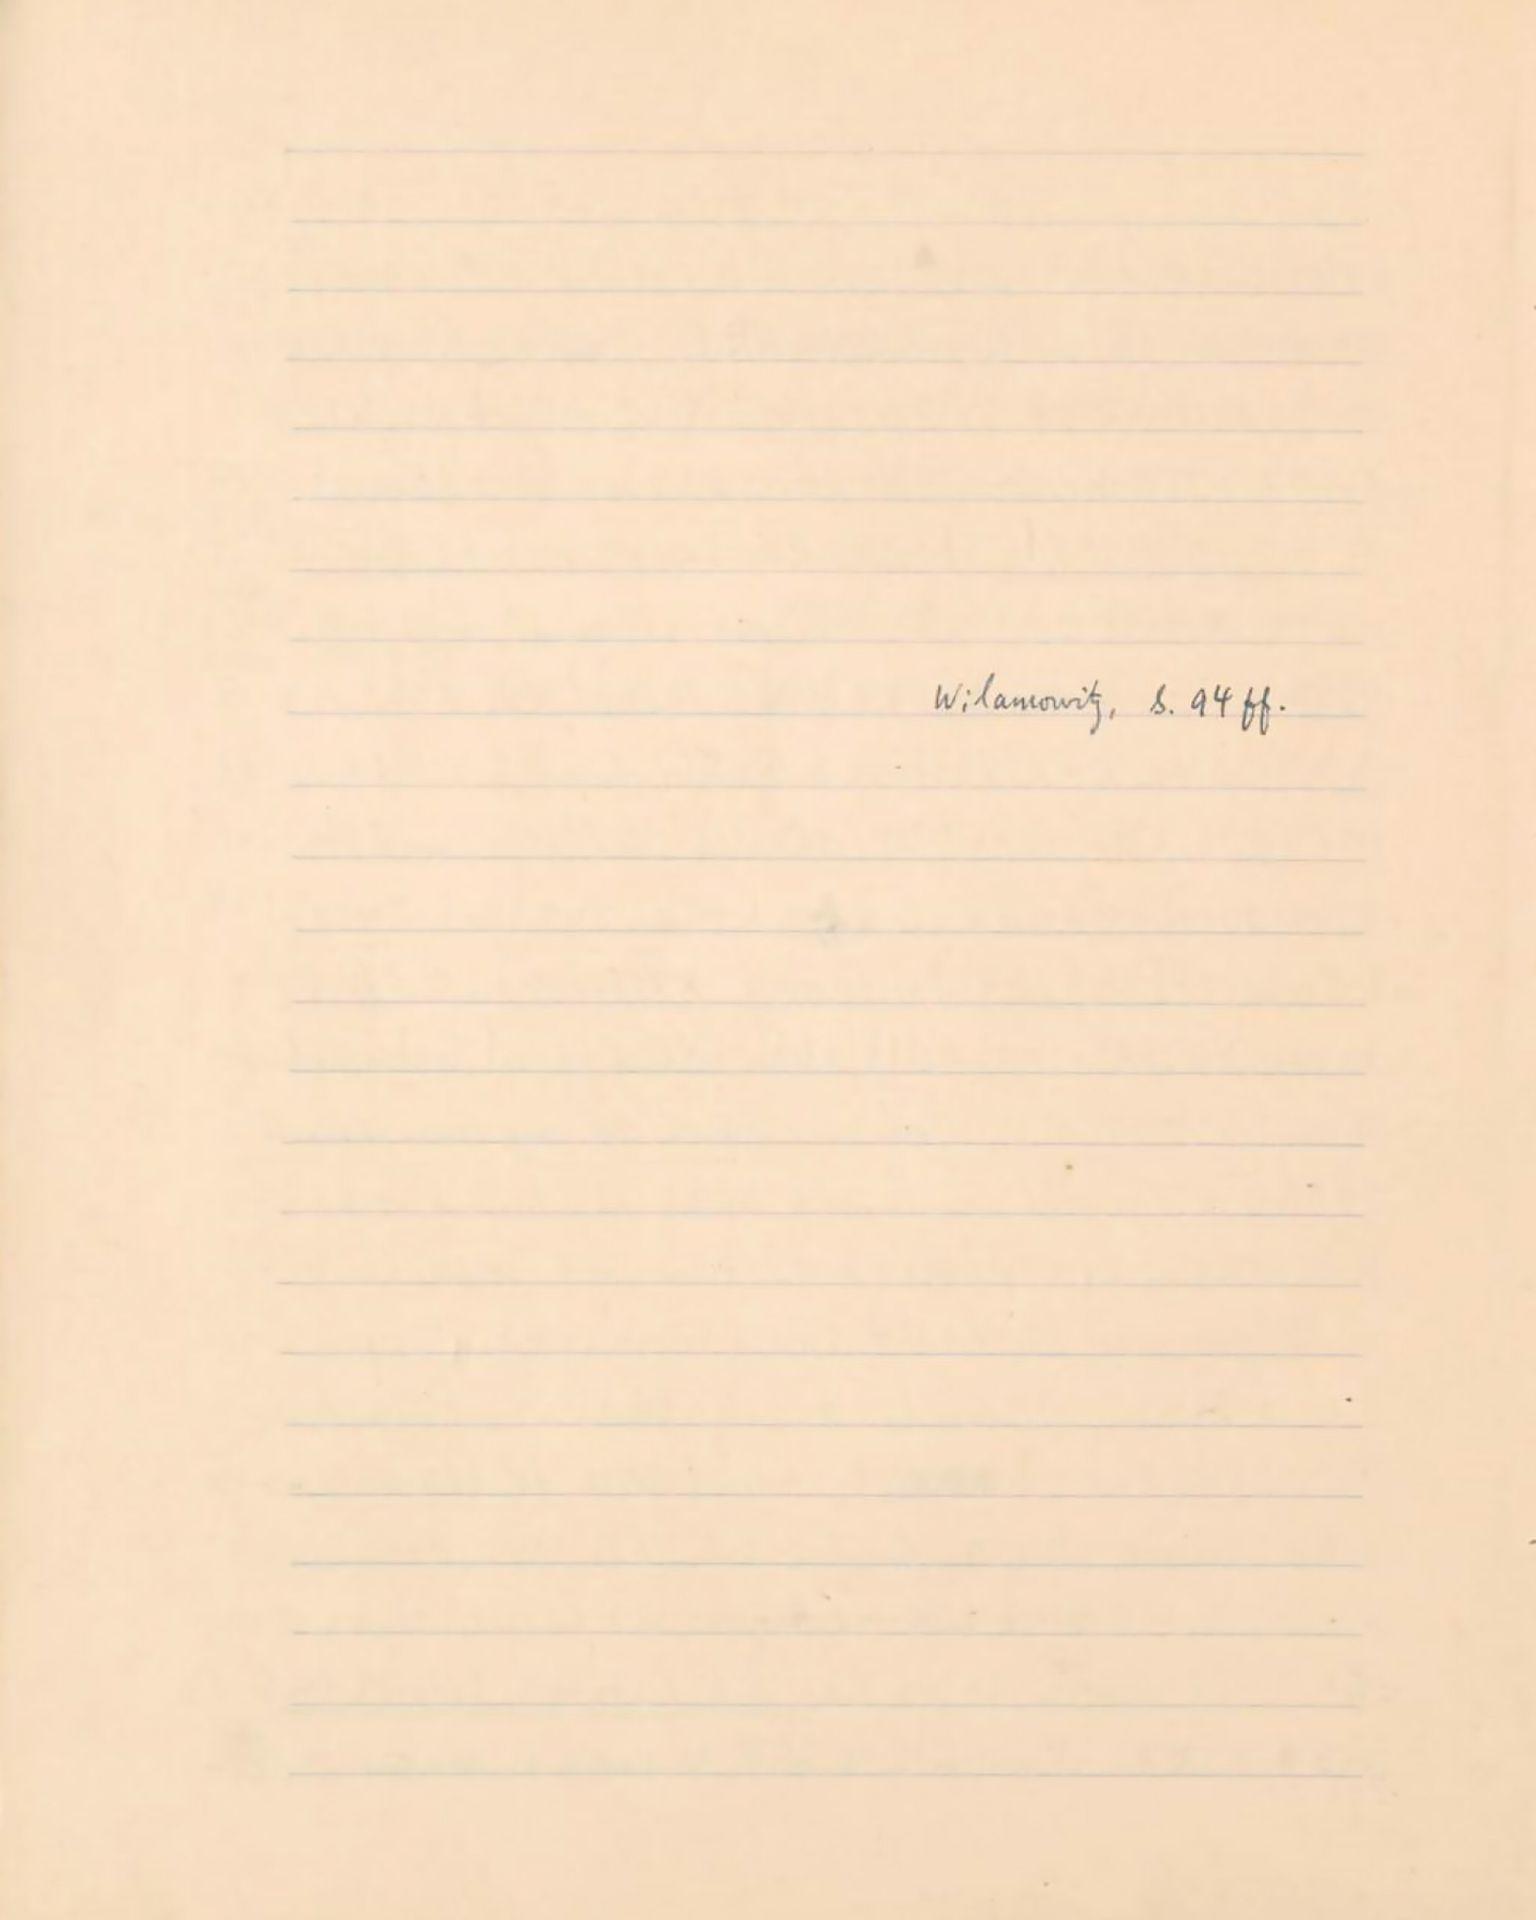 Wilamowitz, S. 94 ff.